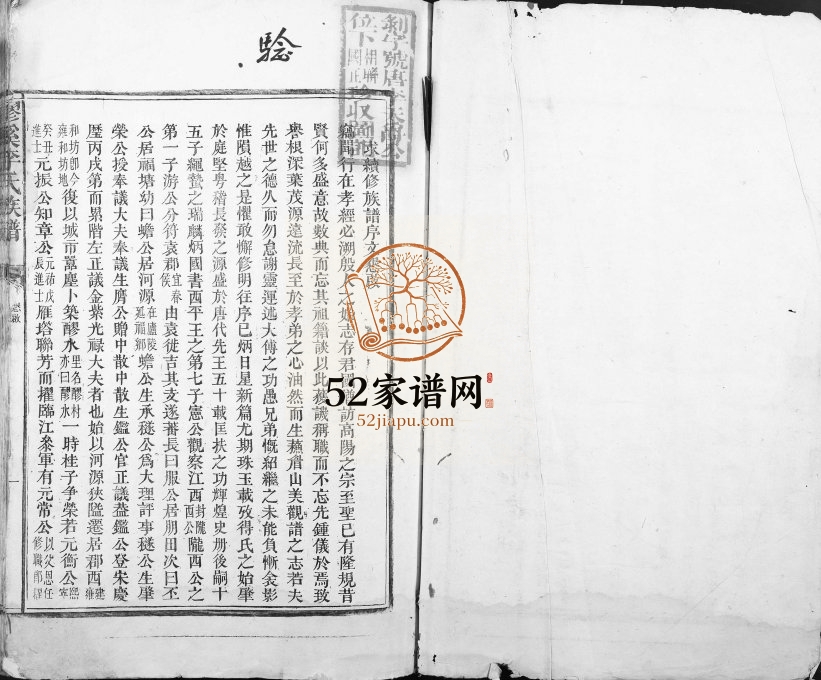 驗
求續修族譜序文懇啟
鄉閭行在孝經必溯殷
之宗至聖已有隆規昔
賢何多盛意故數典而忘其祖籍談以此獲譏稱職而不忘先鍾儀於焉致
譽根深葉茂源遠流長至於孝弟之心油然而生蘇眉山美觀譜之志若夫
先世之德久而勿怠謝靈運述大傅之功愚兄弟慨紹繼之未能負慚衾影
惟隕越之是懼敢懈修明往序已炳日星新篇尤期珠玉載攷得氏之始肇
於庭堅粵稽長發之源盛於唐代先王五十載匡扶之功輝煌史册後嗣十
五子繩蟄之瑞麟炳國書西平王之第七子憲公觀察江西封隴西公隴西公之
第一子游公分符袁郡宜春侯由袁徙吉其支遂蕃長曰服公居朋田次曰丕
公居福塘幼曰蟾公居河源在廬陵延福鄉蟾公生承䅬公為大理評事䅬公生肇
榮公授奉議大夫奉議生膺公贈中散中散生鑑公官正議葢鑑公登朱慶
歷丙戌第而累階左正議金紫光禄大夫者也始以河源狹隘遷居郡西建雍
和坊郎今雍和坊地復以城市囂塵卜築醪水里名醪村亦曰醪水一時桂子爭榮若元衡公熙寧
癸丑進士元振公知章公元祐戊辰進士雁塔聯芳而擢臨江叅軍有元常公以父恩任修職郎
醪溪李氏族譜
懇啟
一
52家谱网
52jiapu.com